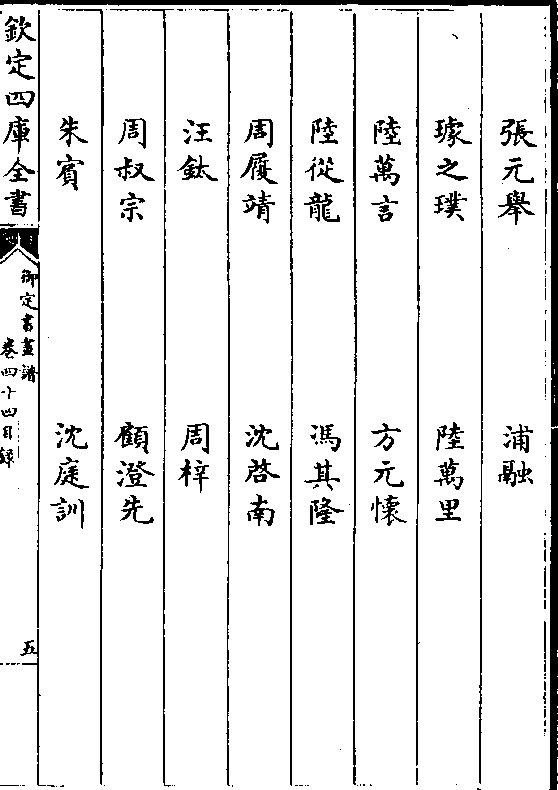 張元舉 浦融
璩之璞 陸萬里
陸萬言 方元懷
陸從龍 馮其隆
周履靖 沈啓南
汪鈦 周梓
周叔宗 顧澄先
朱賓 沈庭訓
欽定四庫全書
御定書畫譜
卷四十四目録
五